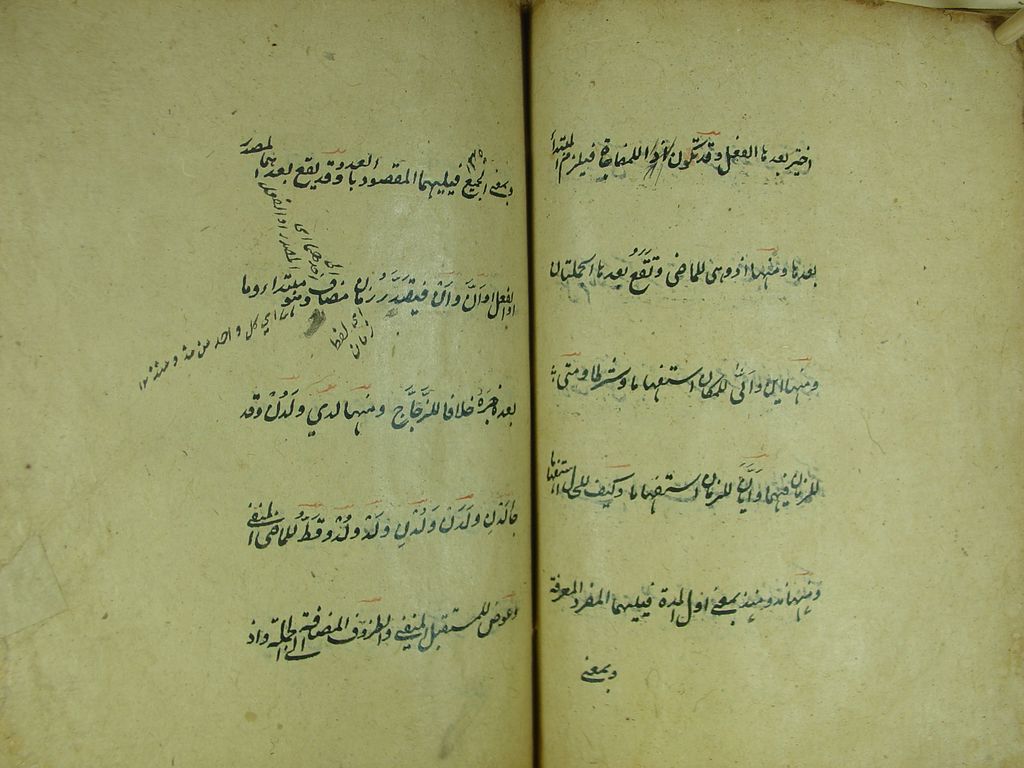 اختير بعدها الفعل وقد تكون للمفاجأة فيلزم المبتدأ
بعدها ومنها اذ وهى للماضى وتقع بعدها الجملتان
ومنها اين وانّى للمكان استفهاما وشرطا ومتى
للزمان فيهما وايّان للزمان استفهاما وكيف للحال استفهاما
ومنها مذ ومنذ بمعنى اول المدة فيليهما المفرد المعرفة
وبمعنى
وبمعنى الجميع فيليهما المقصود بالعدد وقد يقع بعدهما المصدر
او الفعل او انّ وان فيقدّر زمان مضاف وهو مبتداء وما
بعده خبره خلافا للزّجّاج ومنها لدي ولدن وقد
جا لدن ولدن ولدن ولد ولد وقطّ للماضى المنفى
وعوض للمستقبل المنفى والظروف المضافة الى الجملة واذ
المصدر او الفعل
اى لفظ زمان
اي كل واحد من مذ ومنذ